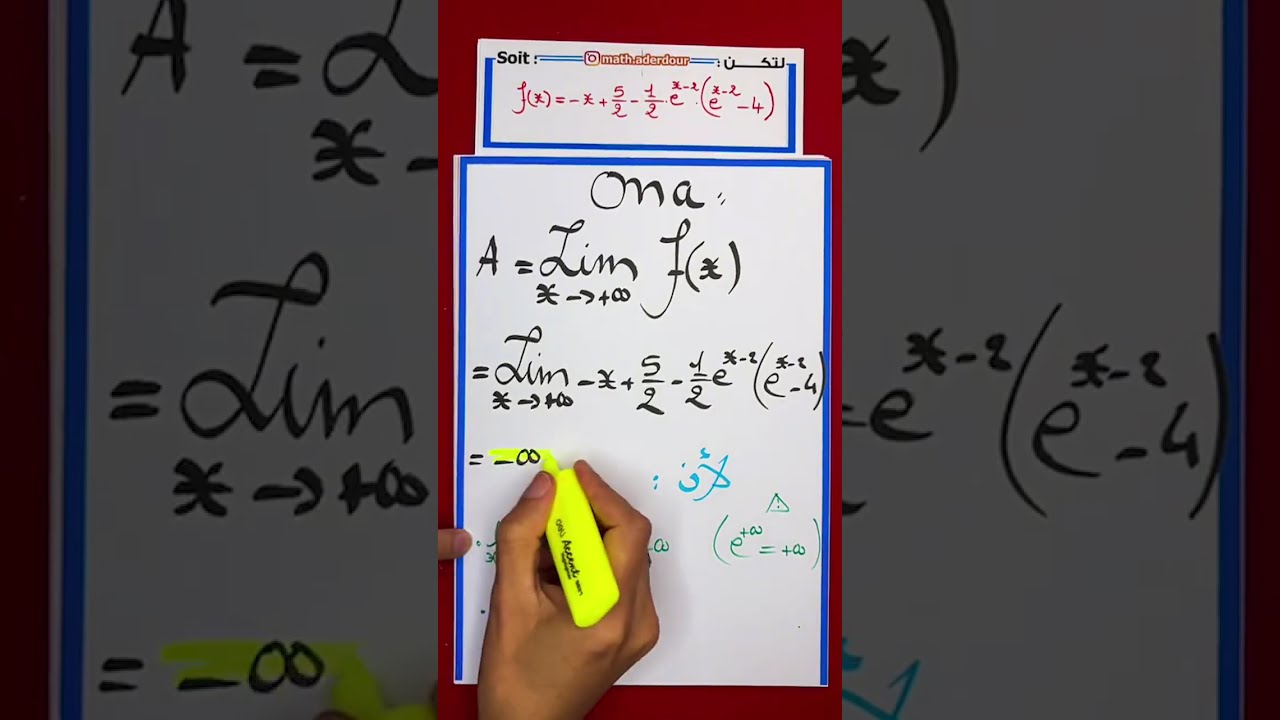 Soit : math.aderdour لتكن :
f(x) = -x + 5/2 - 1/2 . e^(x-2) . (e^(x-2) - 4)
Ona :
A = Lim f(x)
x → +∞
= Lim -x + 5/2 - 1/2 e^(x-2) (e^(x-2) - 4)
x → +∞
= -∞
لأن :
(e^(+∞) = +∞)
Accent